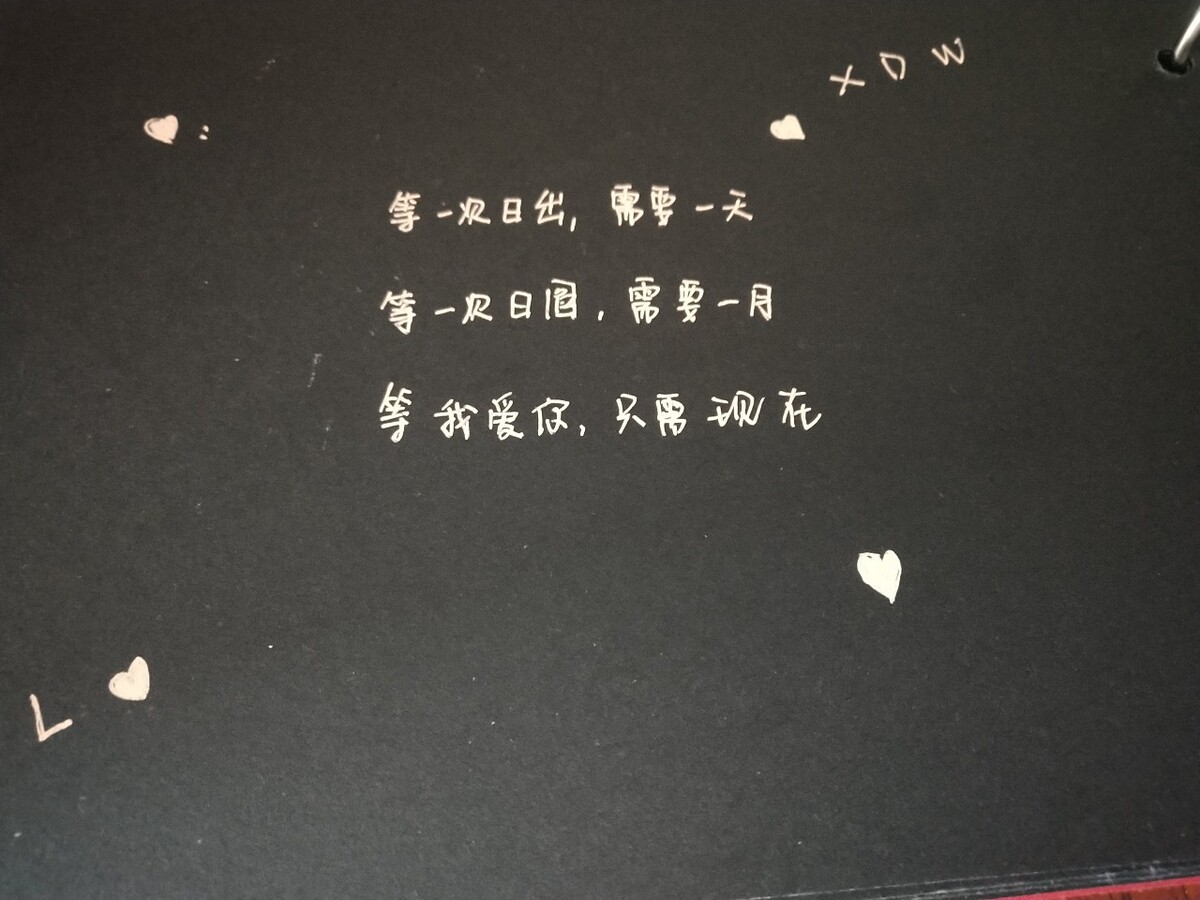 X D W
:
等一次日出，需要一天
等一次日圆，需要一月
等我爱你，只需现在
L